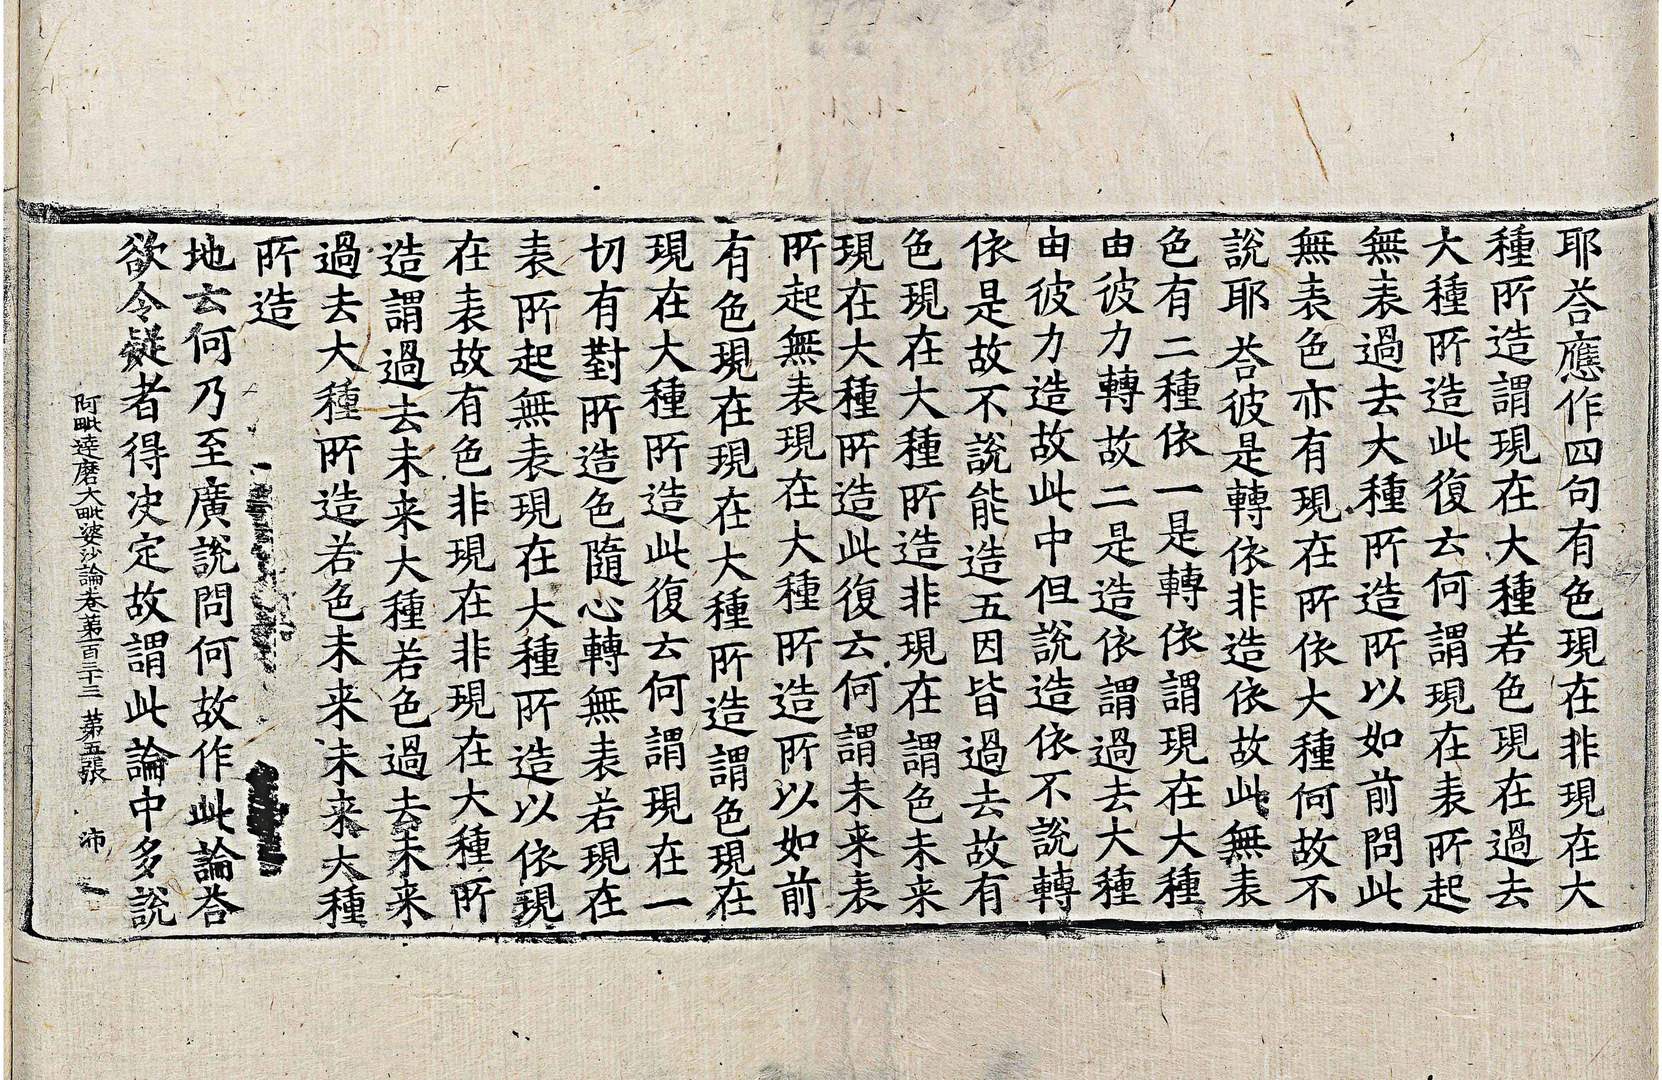 耶荅應作四句有色現在非現在大
種所造謂現在大種若色現在過去
大種所造此復云何謂現在表所起
無表過去大種所造所以如前問此
無表色亦有現在所依大種何故不
說耶荅彼是轉依非造依故此無表
色有二種依一是轉依謂現在大種
由彼力轉故二是造依謂過去大種
由彼力造故此中但說造依不說轉
依是故不說能造五因皆過去故有
色現在大種所造非現在謂色未来
現在大種所造此復云何謂未来表
所起無表現在大種所造所以如前
有色現在現在大種所造謂色現在
現在大種所造此復云何謂現在一
切有對所造色隨心轉無表若現在
表所起無表現在大種所造以依現
在表故有色非現在非現在大種所
造謂過去未来大種若色過去未来
過去大種所造若色未来未来大種
所造
地云何乃至廣說問何故作此論荅
欲令疑者得决定故謂此論中多說
阿毗達磨大毗婆沙論卷第一百三十三 第五張 沛